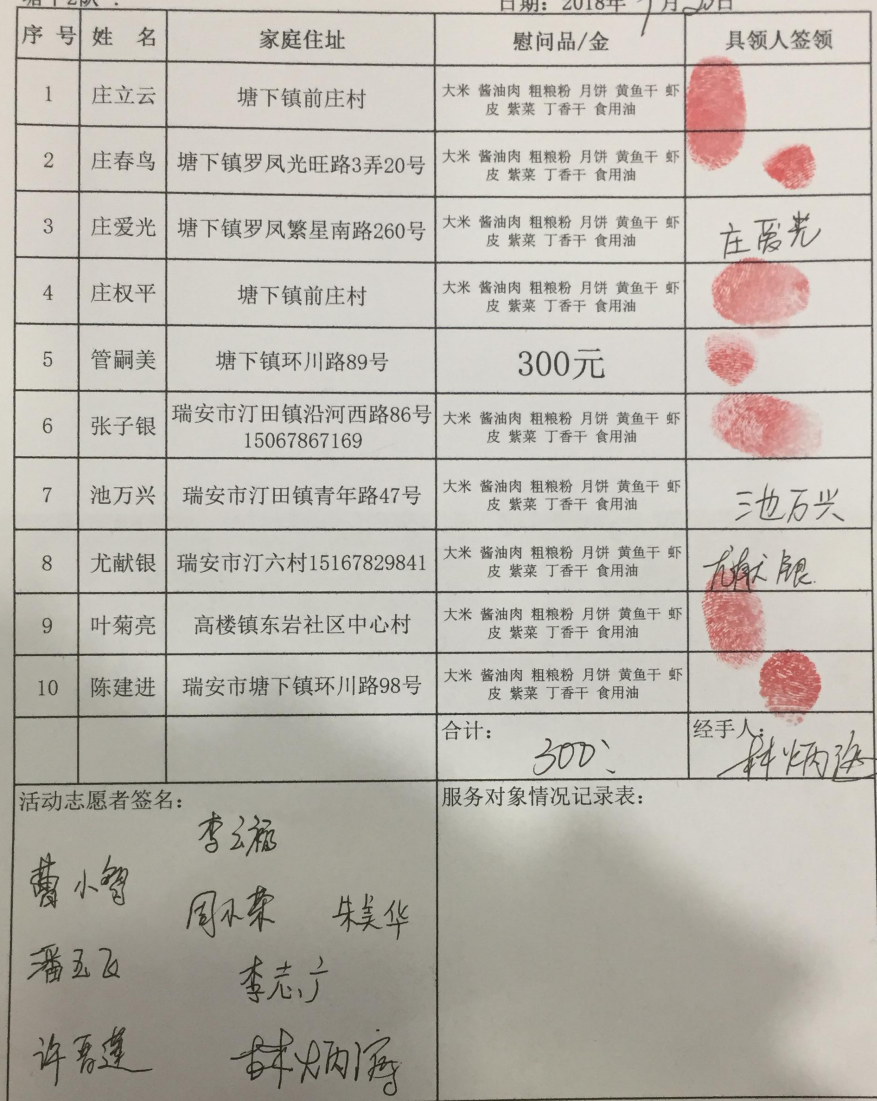 塘下2队:
日期：2018年9月20日
序 号 姓 名 家庭住址 慰问品/金 具领人签领
1 庄立云 塘下镇前庄村 大米 酱油肉 粗粮粉 月饼 黄鱼干 虾
皮 紫菜 丁香干 食用油
2 庄春鸟 塘下镇罗凤光旺路3弄20号 大米 酱油肉 粗粮粉 月饼 黄鱼干 虾
皮 紫菜 丁香干 食用油
3 庄爱光 塘下镇罗凤繁星南路260号 大米 酱油肉 粗粮粉 月饼 黄鱼干 虾
皮 紫菜 丁香干 食用油 庄爱光
4 庄权平 塘下镇前庄村 大米 酱油肉 粗粮粉 月饼 黄鱼干 虾
皮 紫菜 丁香干 食用油
5 管嗣美 塘下镇环川路89号 300元
6 张子银 瑞安市汀田镇沿河西路86号
15067867169 大米 酱油肉 粗粮粉 月饼 黄鱼干 虾
皮 紫菜 丁香干 食用油
7 池万兴 瑞安市汀田镇青年路47号 大米 酱油肉 粗粮粉 月饼 黄鱼干 虾
皮 紫菜 丁香干 食用油 池万兴
8 尤献银 瑞安市汀六村15167829841 大米 酱油肉 粗粮粉 月饼 黄鱼干 虾
皮 紫菜 丁香干 食用油 尤献银
9 叶菊亮 高楼镇东岩社区中心村 大米 酱油肉 粗粮粉 月饼 黄鱼干 虾
皮 紫菜 丁香干 食用油
10 陈建进 瑞安市塘下镇环川路98号 大米 酱油肉 粗粮粉 月饼 黄鱼干 虾
皮 紫菜 丁香干 食用油
合计： 300
经手人：
活动志愿者签名：
李云福
曹小智
朱美华
潘玉飞
李志广
服务对象情况记录表：